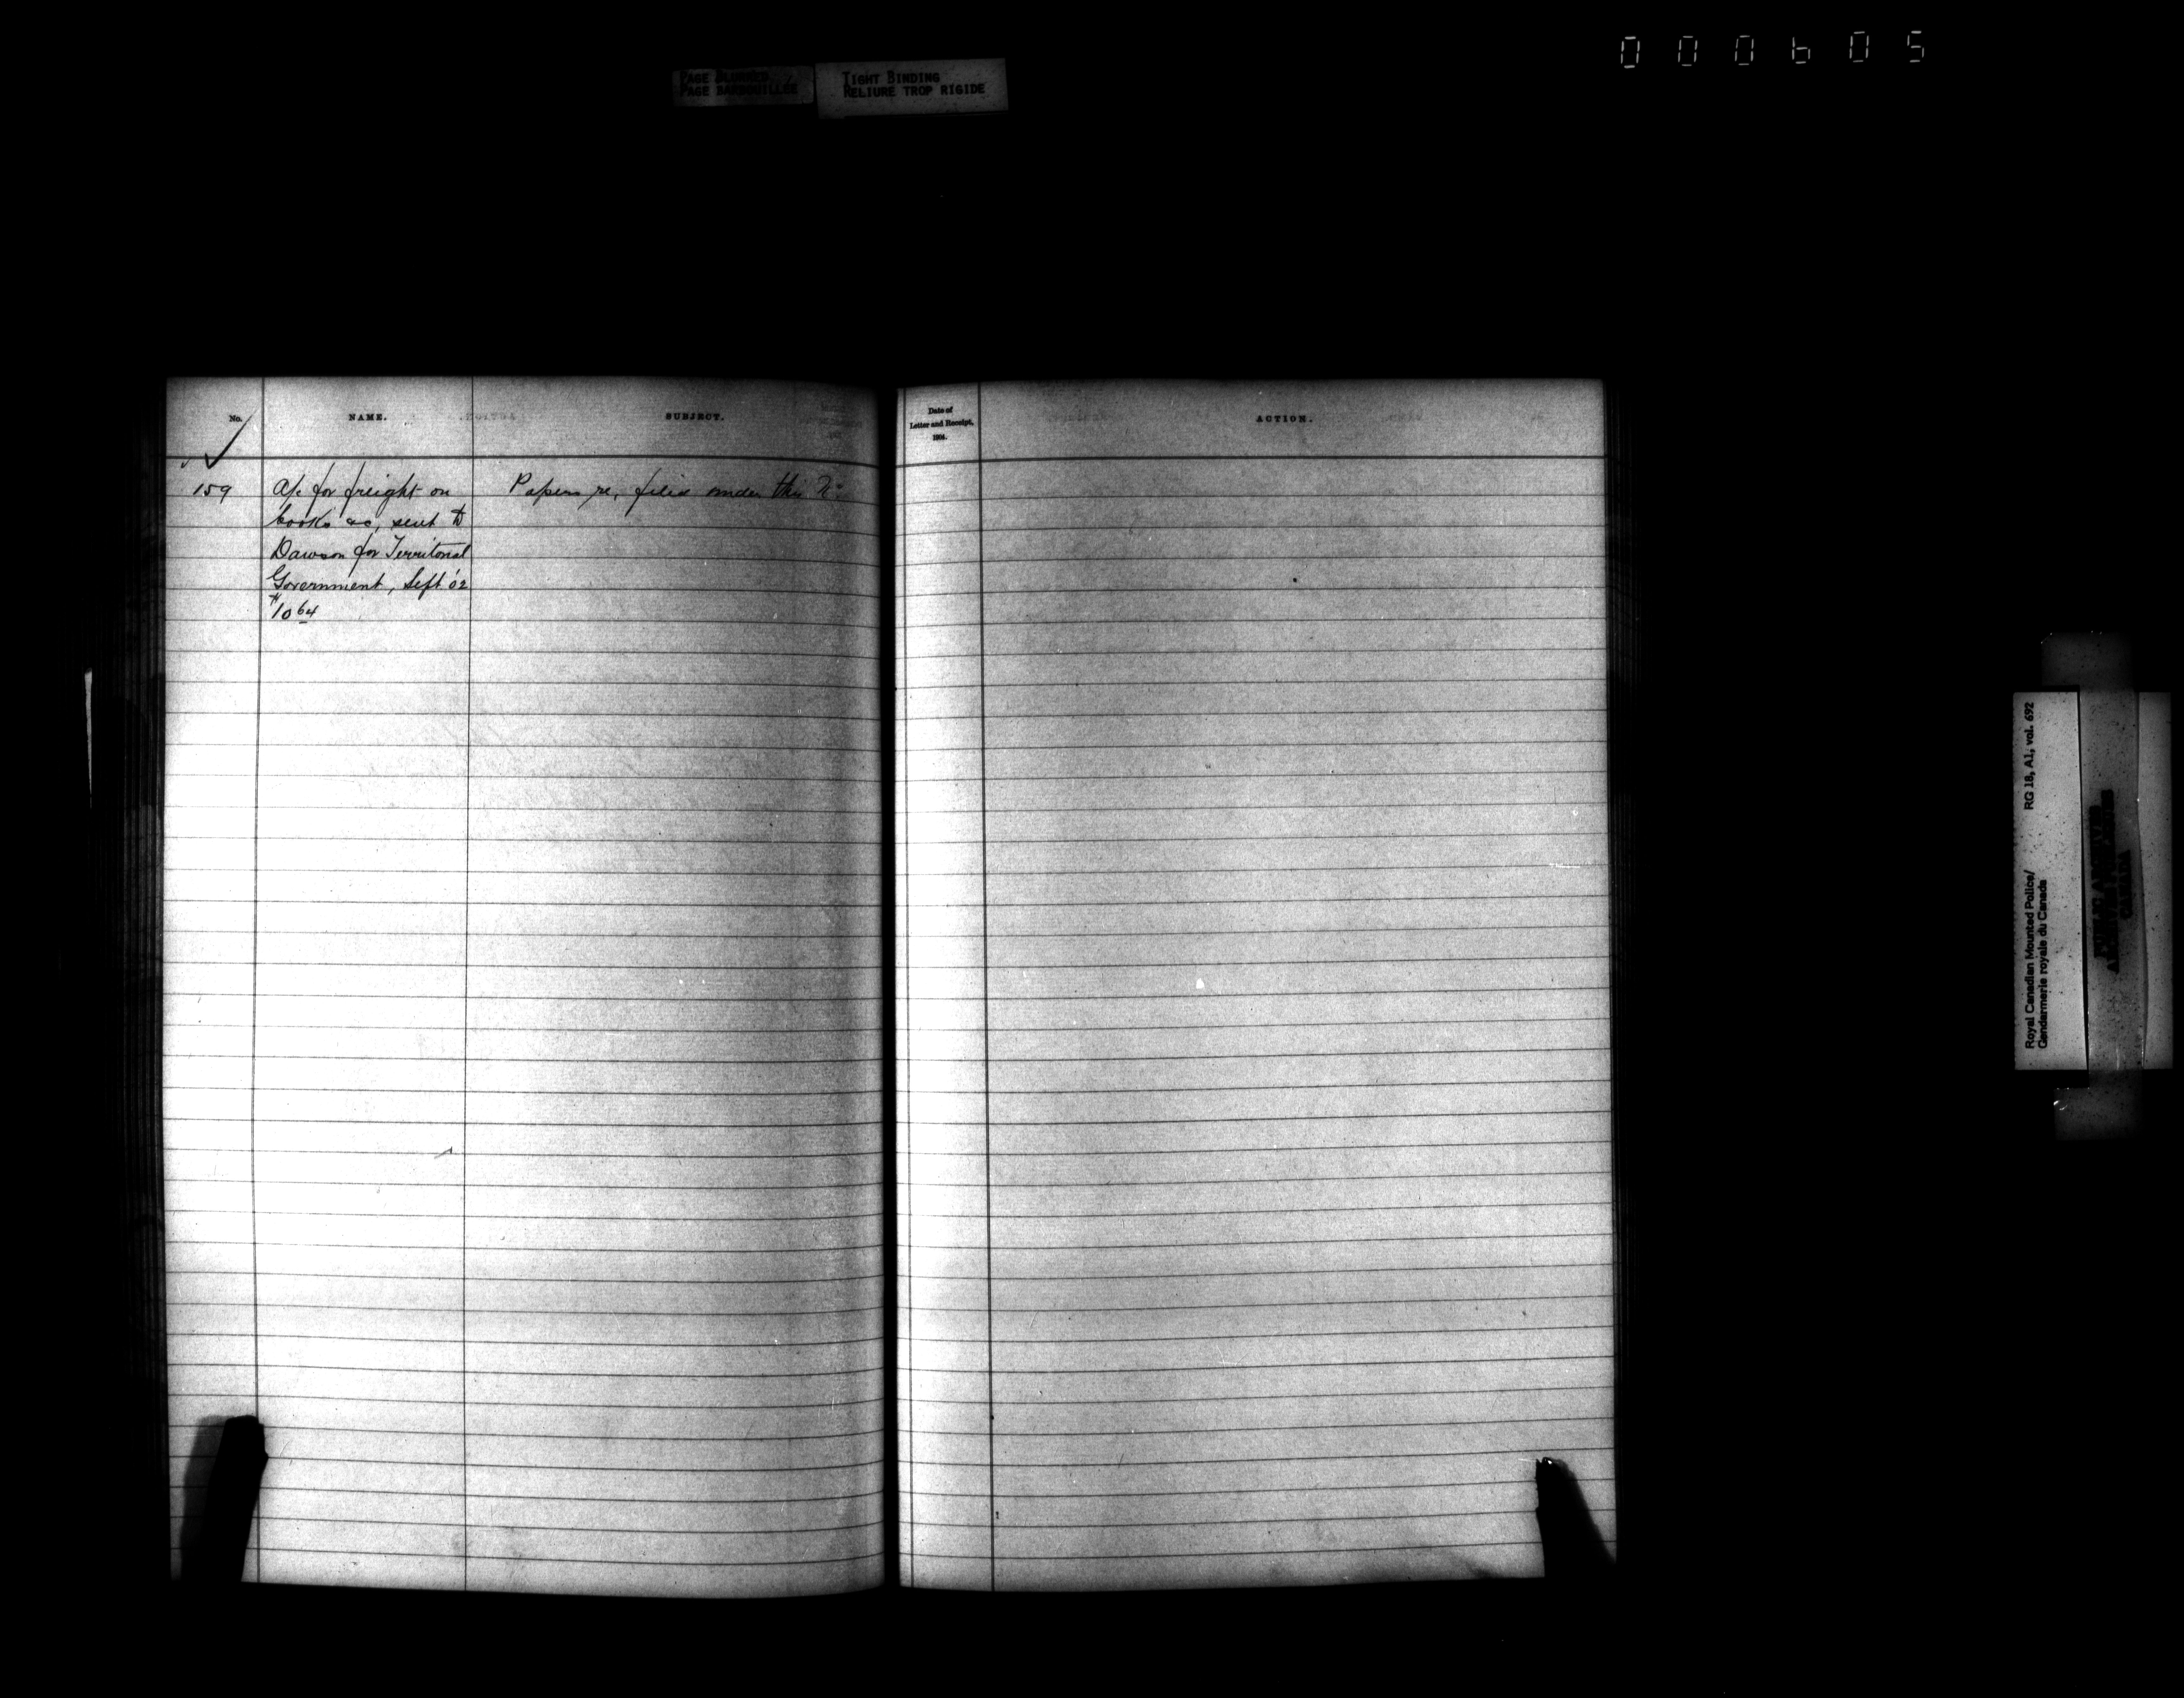 000605
PAGE BLURRED
PAGE BARBOUILLÉE
TIGHT BINDING
RELIURE TROP RIGIDE
No.
NAME.
SUBJECT.
Date of
Letter and Receipt,
1904.
ACTION.
159
A/c for freight on
books &c, sent to
Dawson for Territorial
Government, Sept '02
$10 64
Papers re, filed under this No
Royal Canadian Mounted Police/
Gendarmerie royale du Canada
RG 18, A1, vol. 692
PUBLIC ARCHIVES
CANADA